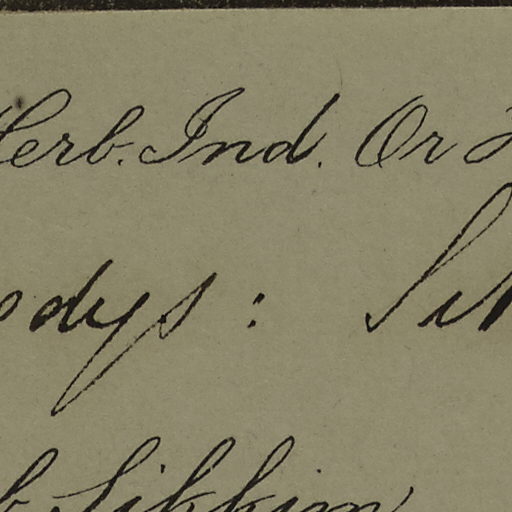 Herb. Ind. Or
odys:
Sikkim